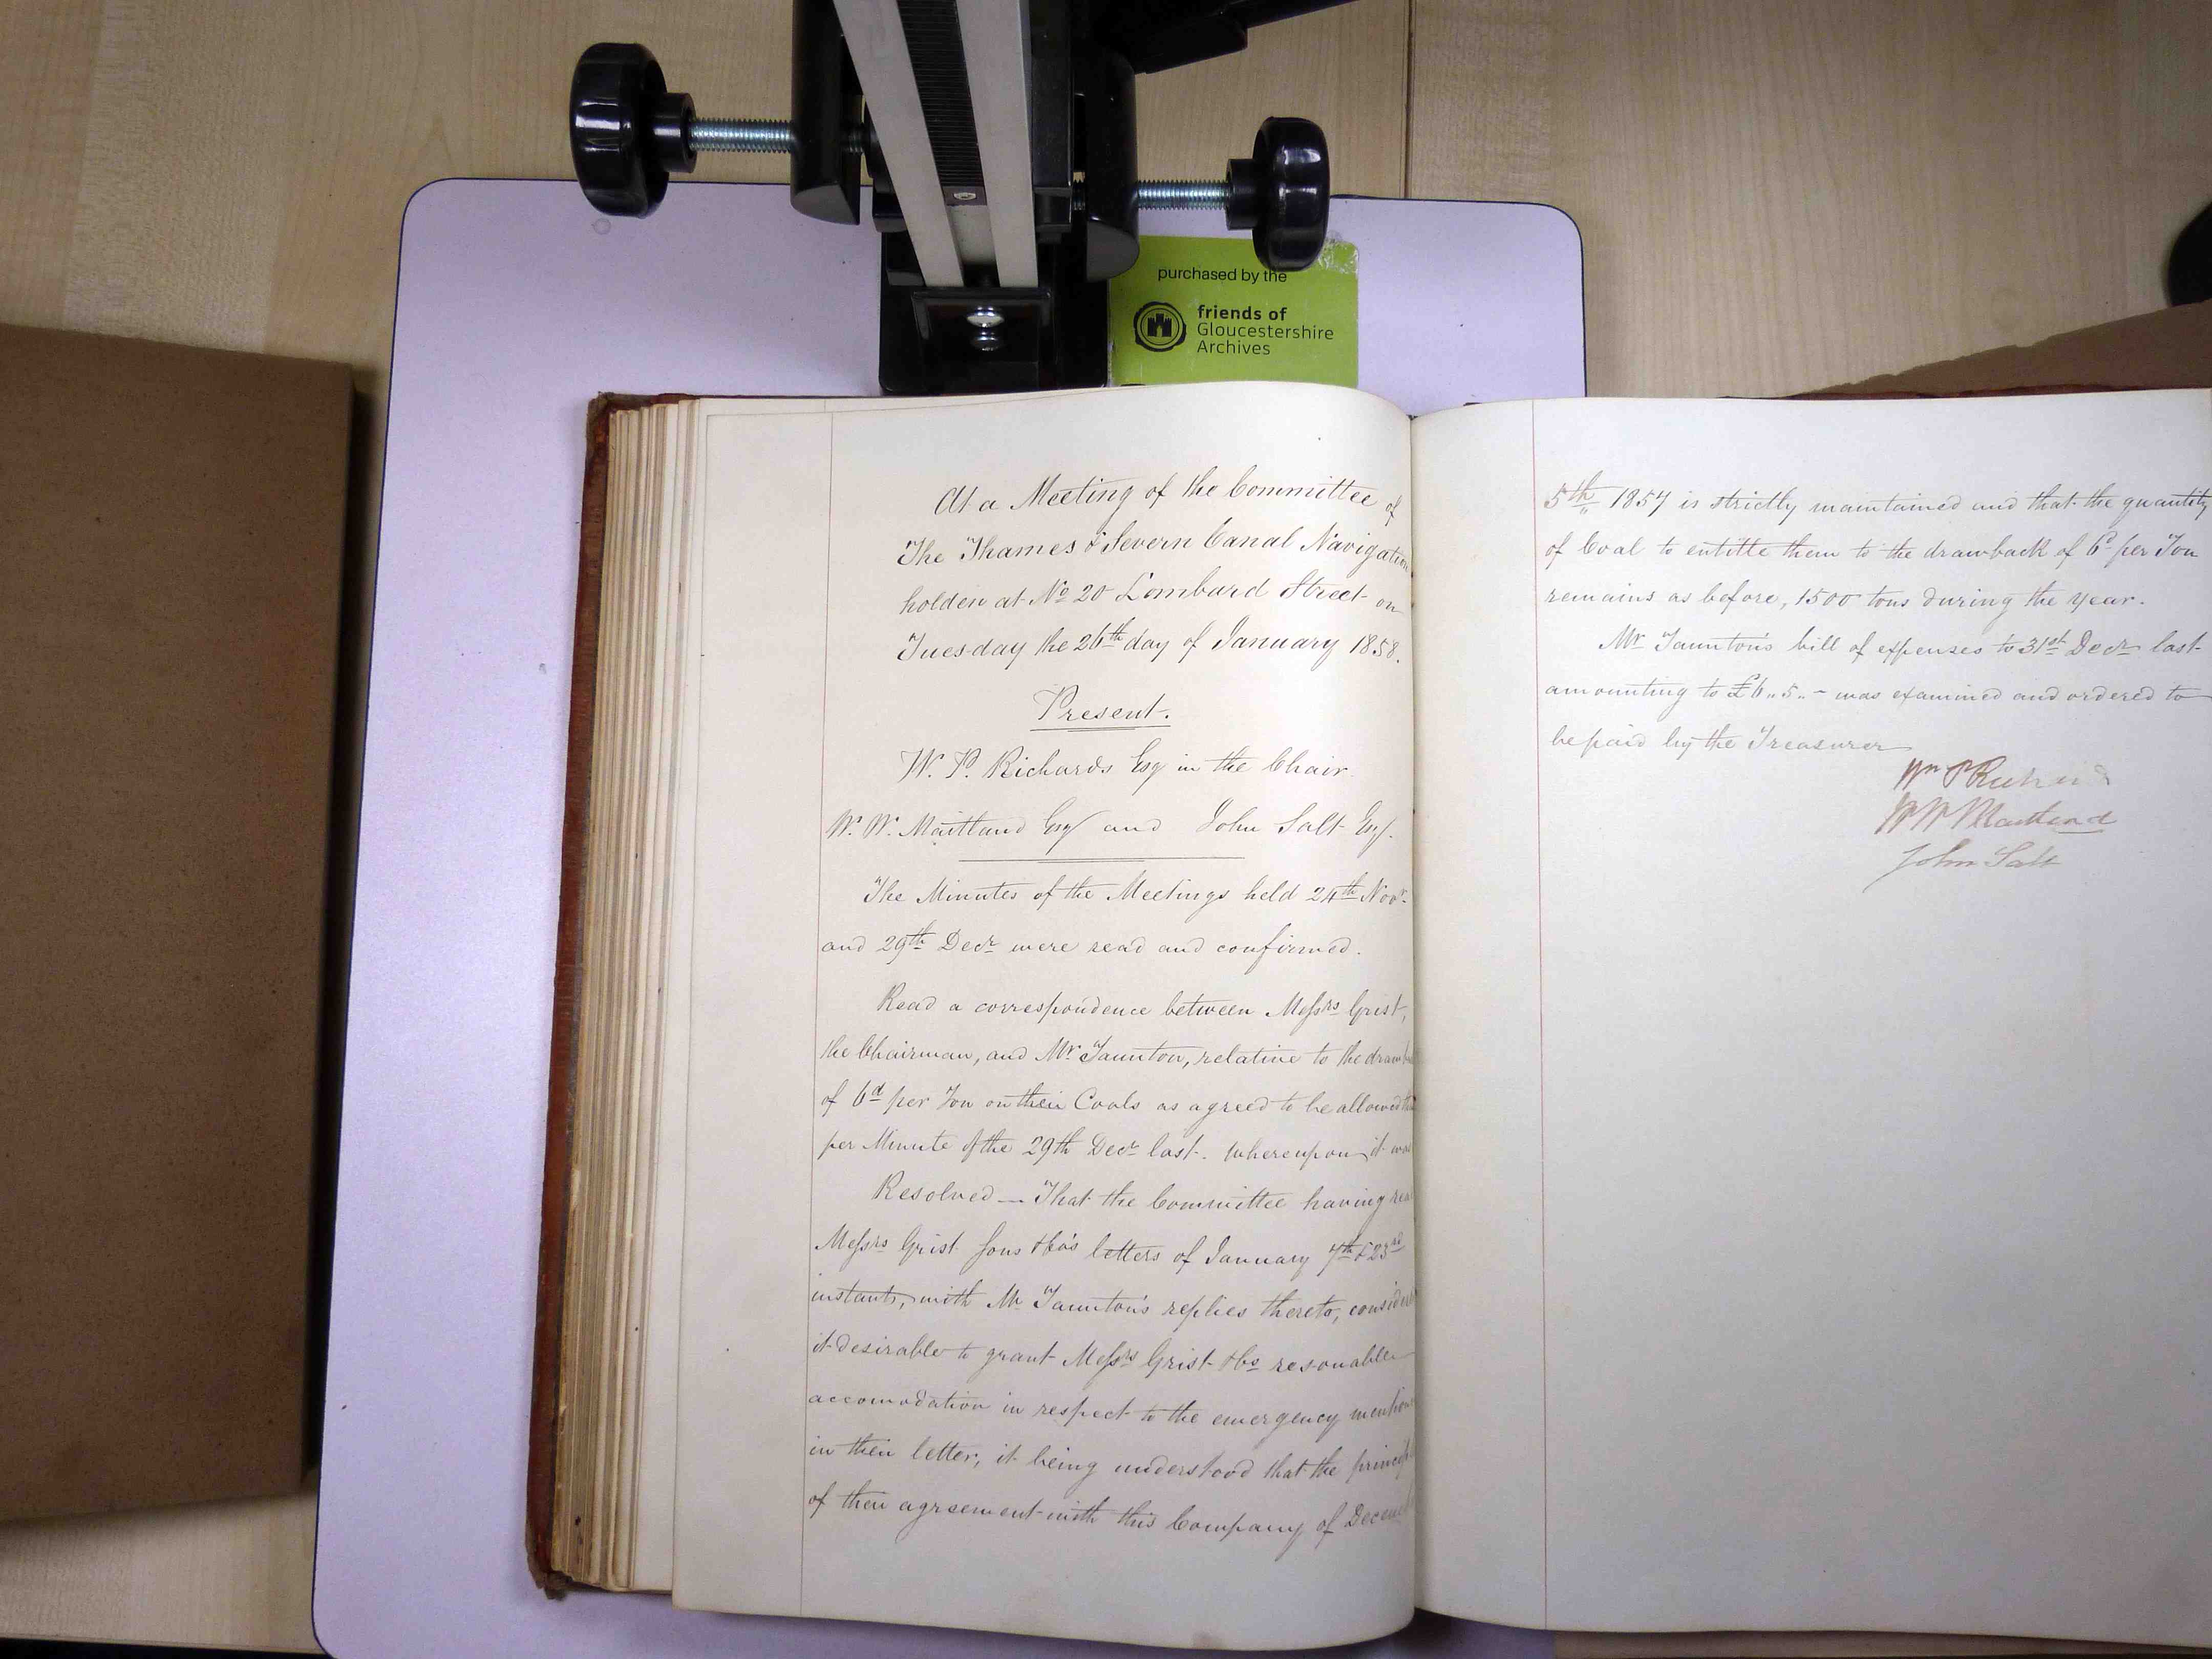 purchased by the
friends of
Gloucestershire
Archives
At a Meeting of the Committee of
The Thames & Severn Canal Navigation
holden at No 20 Lombard Street on
Tuesday the 26th day of January 1858.
Present.
W. P. Richards Esq in the Chair
W. W. Maitland Esq and John Salt Esq.
The Minutes of the Meetings held 24th Novr.
and 29th Decr were read and confirmed.
Read a correspondence between Messrs Grist,
the Chairman, and Mr. Taunton, relative to the draw
of 6d per Ton on their Coals as agreed to be allowed
per Minute of the 29th Decr last. Whereupon it was
Resolved — That the Committee having
Messrs Grist Sons & Co's letters of January 7th & 23rd
instant, with Mr Taunton's replies thereto, consider
it desirable to grant Messrs Grist & Co resonable
accomodation in respect to the emergency mention
in their letter, it being understood that the princip
of their agreement with this Company of Decem
5th 1857 is strictly maintained and that the quantity
of Coal to entitle them to the drawback of 6d per Ton
remains as before, 1500 tons during the year.
Mr Taunton's bill of expenses to 31st Decr last
amounting to £6,,5,,- was examined and ordered to
be paid by the Treasurer
Wm P Richards
W W Maitland
John Salt